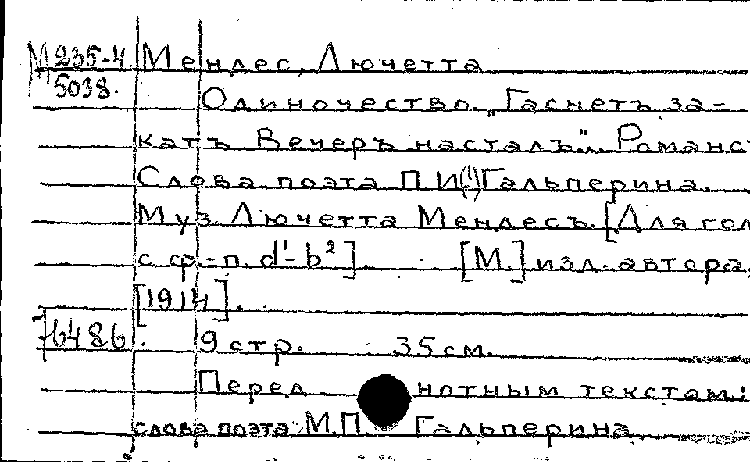 М 235-4 Мендес, Лючетта
5038.
Одиночество. „Гаснетъ за-
катъ Вечеръ насталъ". Романс
Слова поэта П.И(!) Гальперина.
Муз. Лючетта Мендесъ. [Для гол
с ф.-п. d¹-b²] [М.] изд. автора,
[1914].
9 стр. 35 см.
Перед нотным текстом:
слова поэта М.П. Гальперина.